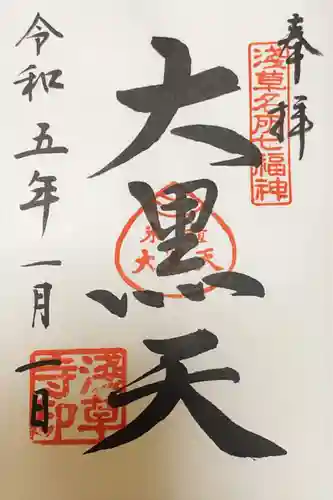 奉拝
淺草名所七福神
大黒天
大天
令和五年一月一日
淺草寺印